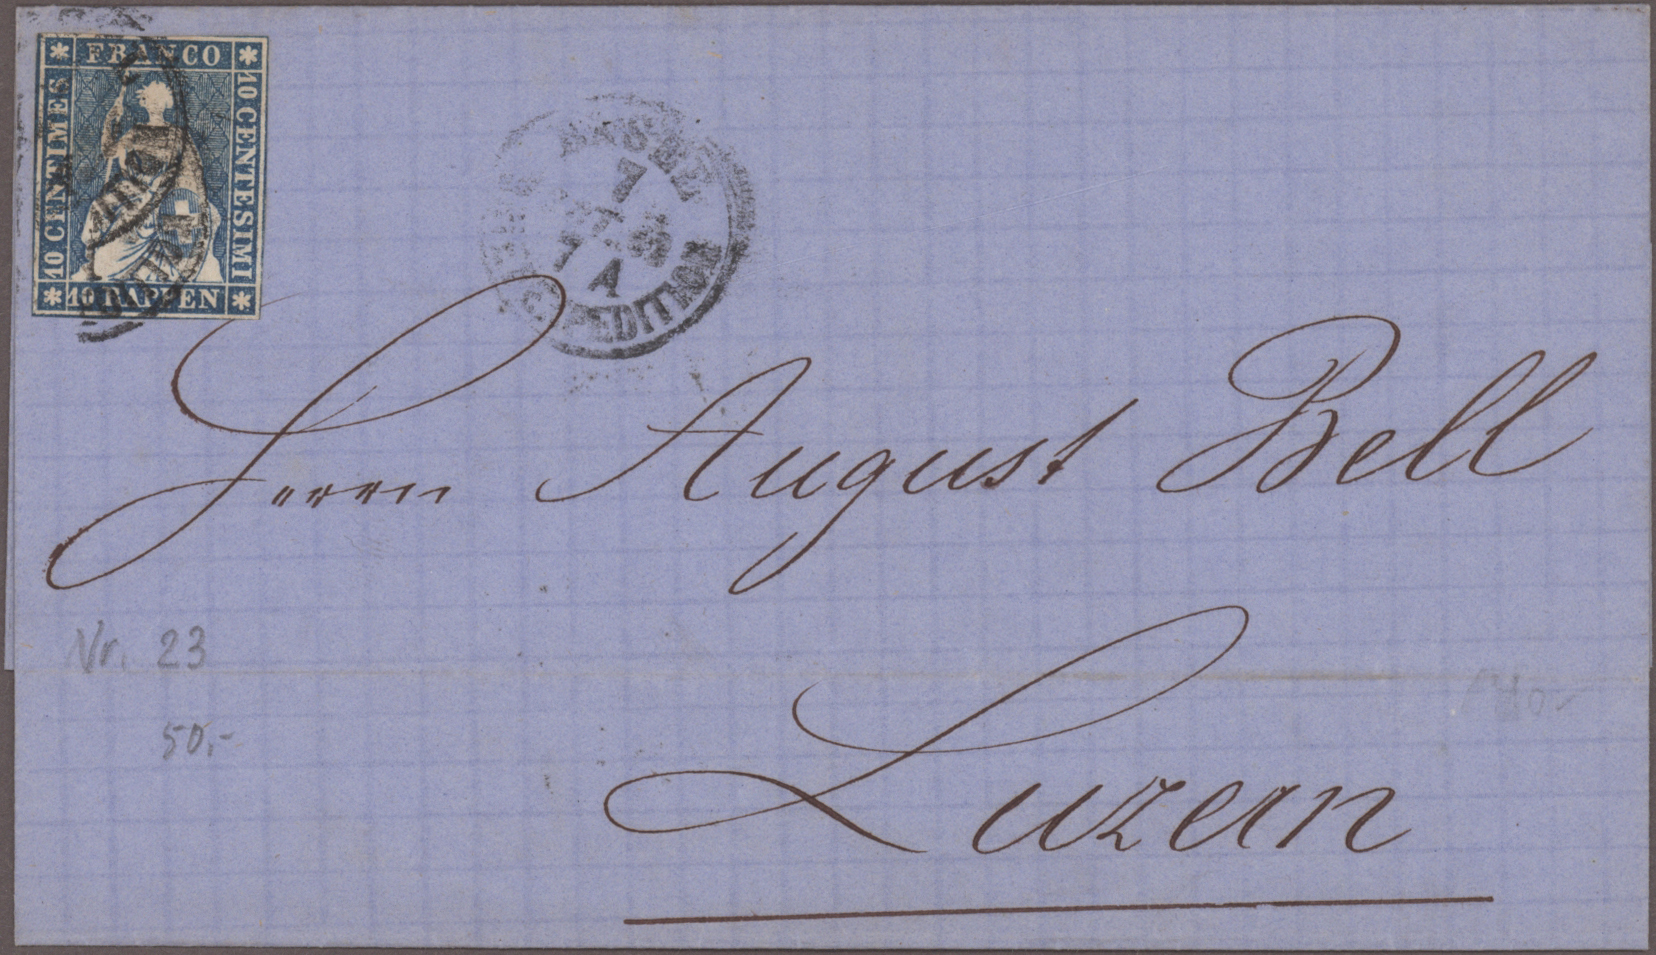 FRANCO
10 CENTIMES
10 CENTESIMI
10 RAPPEN
BASEL
7
A
EXPEDITION
Herrn August Bell
Luzern
Nr. 23
50,-